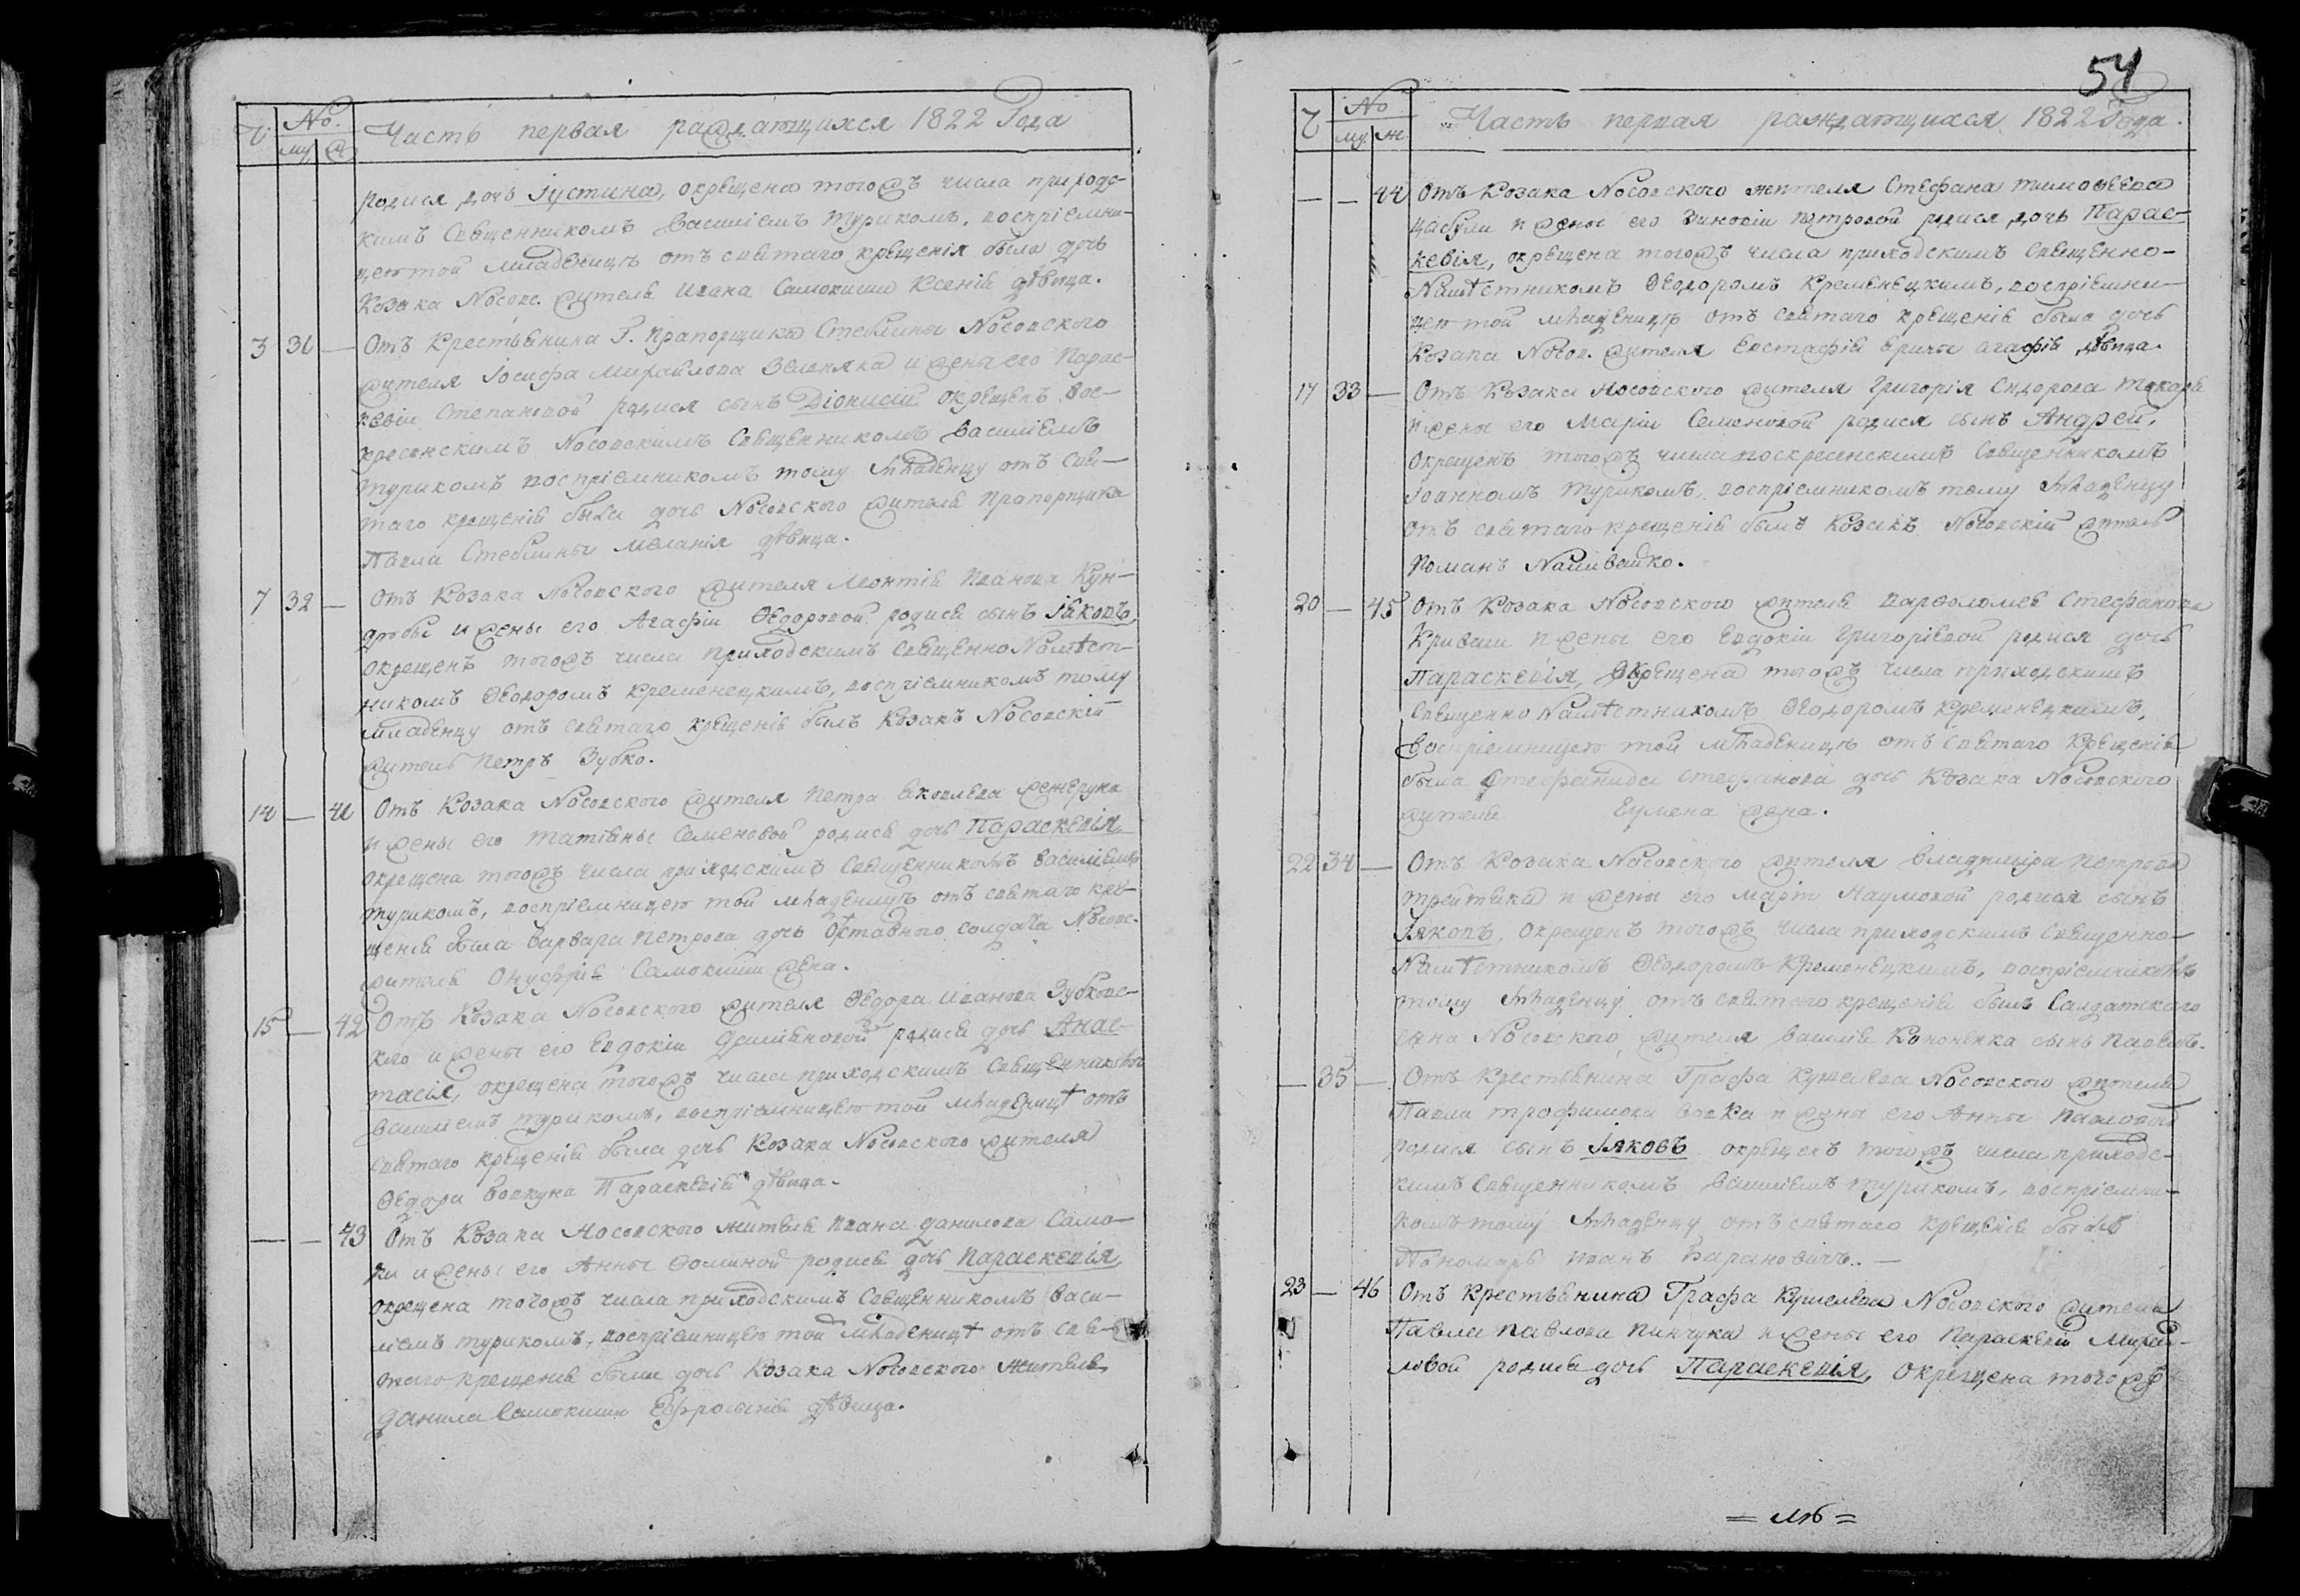 Ч № му ж Часть первая раждающихся 1822 Года
родися дочь Іустина, окрещена тогожъ числа приходс-
кимъ Священникомъ Василіемъ Турикомъ, воспріемни-
цею той младеницѣ отъ святаго крещенія была дочь
Козака Носовс. жителя Ивана Самокиши Ксенія дѣвица.
3 31 — Отъ Крестьянина Г. Прапорщика Стеблины Носовского
жителя Іосифа Михайлова Зеленяка и жены его Парас-
кевіи Степановой родися сынъ Діонисій окрещенъ Вос-
кресенскимъ Носовскимъ Священникомъ Василіемъ
Турикомъ воспріемникомъ тому младенцу отъ Свя-
таго крещенія была дочь Носовского жителя Прапорщика
Павла Стеблины Меланія дѣвица.
7 32 — Отъ Козака Носовского жителя Леонтія Иванова Кун-
дюбы и жены его Агафіи Ѳедоровой родися сынъ Іаковъ,
окрещенъ тогожъ числа приходскимъ Священно Намѣст-
никомъ Ѳеодоромъ Кременецкимъ, воспріемникомъ тому
младенцу отъ святаго крещенія былъ Козакъ Носовскій
житель Петръ Зубко.
14 — 41 Отъ Козака Носовского жителя Петра Яковлева
и жены его Татіяны Семеновой родися дочь Параскевія,
окрещена тогожъ числа приходскимъ Священникомъ Василіемъ
Турикомъ, воспріемницею той младеницѣ отъ святаго кре-
щенія была Варвара Петрова дочь Отставного солдата Носовс.
жителя Онуфрія Самокиши жена.
15 — 42 Отъ Козака Носовского жителя Ѳедора Иванова Зубковс-
кого и жены его Евдокіи Даміяновой родися дочь Анас-
тасія, окрещена тогожъ числа приходскимъ Священникомъ
Василіемъ Турикомъ, воспріемницею той младеницѣ отъ
святаго крещенія была дочь Козака Носовского жителя
Ѳедора Вовкуна Параскевія дѣвица.
— — 43 Отъ Козака Носовского жителя Ивана Данилова Само-
и жены его Анны Ѳоминой родися дочь Параскевія,
окрещена тогожъ числа приходскимъ Священникомъ Васи-
ліемъ Турикомъ, воспріемницею той младеницѣ отъ свя-
таго крещенія была дочь Козака Носовского жителя
Данила Самокиши Ефросинія дѣвица.
54
Ч № му ж Часть первая раждающихся 1822 Года.
— — 44 Отъ Козака Носовского жителя Стефана Тимоѳеева
Цабули и жены его Зиновіи Петровой родися дочь Парас-
кевія, окрещена тогожъ числа приходскимъ Священно-
Намѣстникомъ Ѳеодоромъ Кременецкимъ, воспріемни-
цею той младеницѣ отъ святаго крещенія была дочь
Козака Носов. жителя Евстафія Ярины Агафія дѣвица.
17 33 — Отъ Козака Носовского жителя Григорія Сидорова Токаря
и жены его Маріи Семеновой родися сынъ Андрей,
окрещенъ тогожъ числа воскресенскимъ Священникомъ
Іоанномъ Турикомъ, воспріемникомъ тому младенцу
отъ святаго крещенія былъ Козакъ Носовскій житель
Романъ Наливайко.
20 — 45 Отъ Козака Носовского жителя Варѳоломея Стефанова
Криваши и жены его Евдокіи Григоріевой родися дочь
Параскевія, окрещена тогожъ числа приходскимъ
Священно Намѣстникомъ Ѳеодоромъ Кременецкимъ,
Воспріемницею той младеницѣ отъ Святаго Крещенія
была Стефанида Стефанова дочь Козака Носовского
жителя Еумена жена.
22 34 — Отъ Козака Носовского жителя Владиміра Петрова
Трейтяка и жены его Маріи Наумовой родися сынъ
Іяковъ, окрещенъ тогожъ числа приходскимъ Священно-
Намѣстникомъ Ѳеодоромъ Кременецкимъ, воспріемникомъ
тому младенцу отъ святаго крещенія былъ Салдатского
сына Носовского жителя Василія Кононенка сынъ Павелъ.
— 35 — Отъ Крестьянина Графа Кушелева Носовского жителя
Павла Трофимова Вовка и жены его Анны Павловой
родися сынъ Іяковъ окрещенъ тогожъ числа приходс-
кимъ Священникомъ Василіемъ Турикомъ, воспріемни-
комъ тому младенцу отъ святаго крещенія былъ
Пономарь Иванъ Барановичъ. —
23 — 46 Отъ Крестьянина Графа Кушелева Носовского жителя
Павла Павлова Пинчука и жены его Параскевіи Михай-
ловой родися дочь Параскевія, окрещена тогожъ